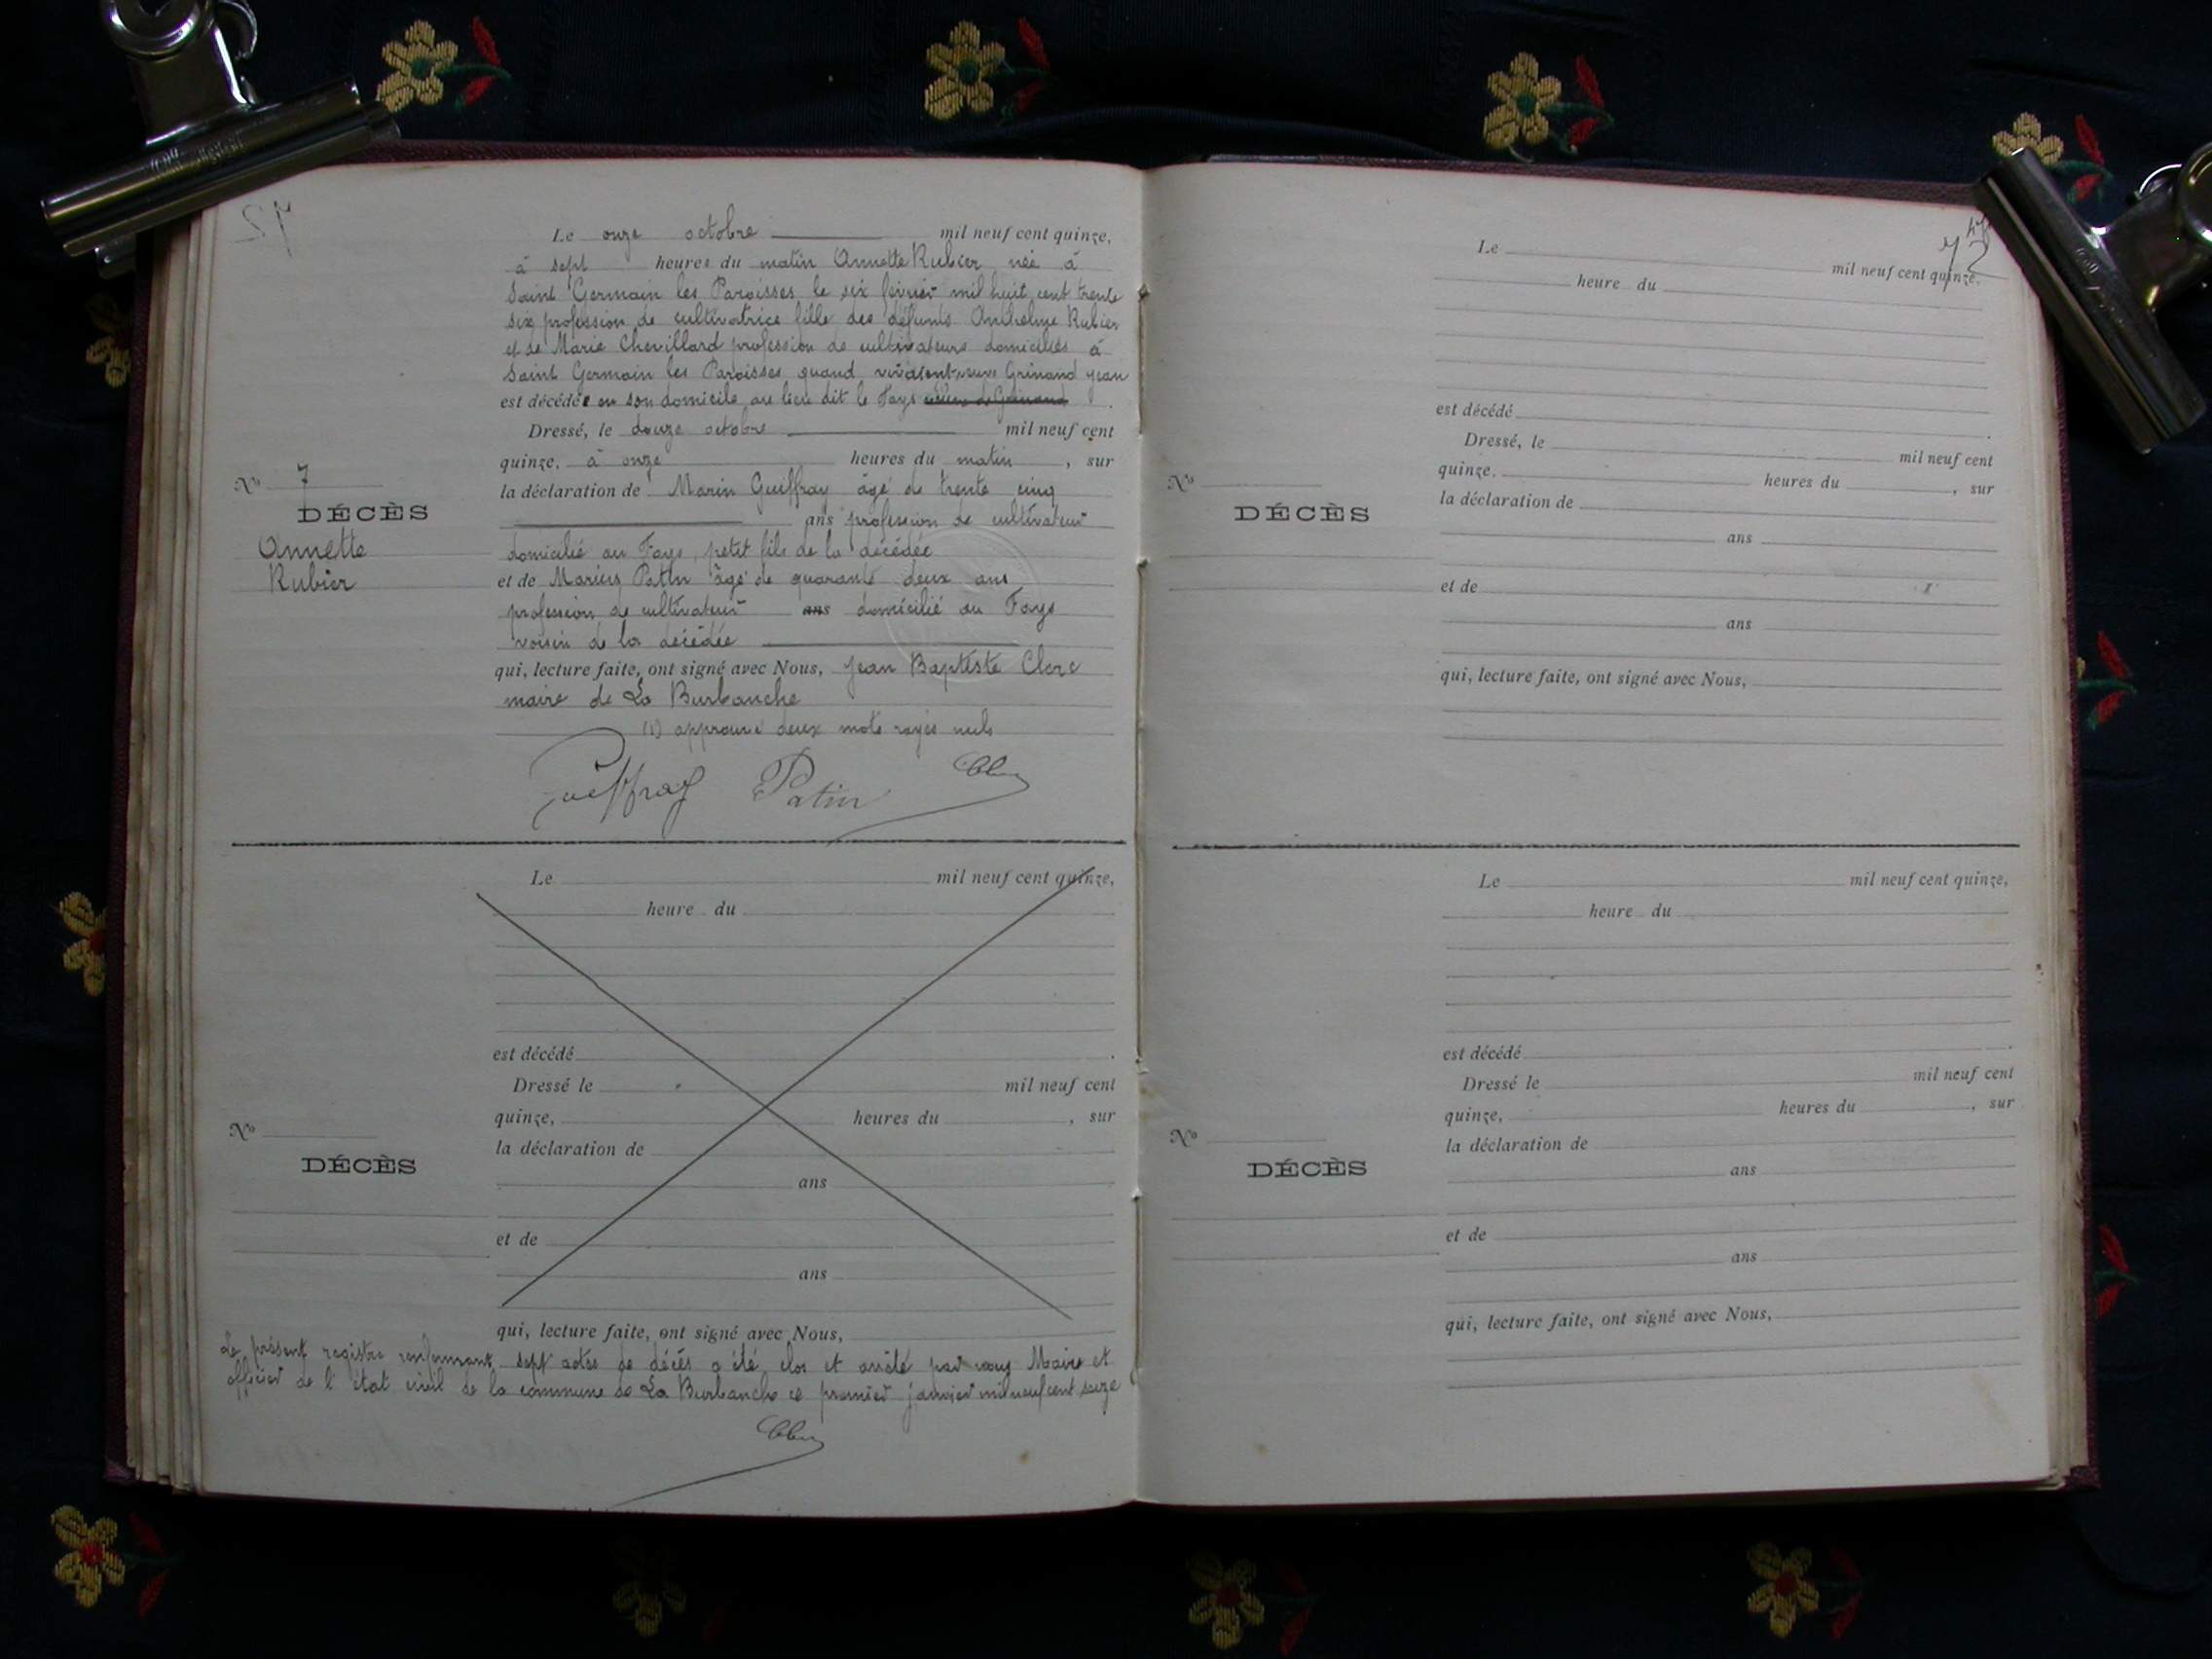 Le onze octobre mil neuf cent quinze,
à sept heures du matin Annette Rubier née à
Saint Germain les Paroisses le six février mil huit cent trente
six profession de cultivatrice fille des défunts Anthelme Rubier
et de Marie Chevillard profession de cultivateurs domiciliés à
Saint Germain les Paroisses quand vivaient, veuve Grinand Jean
est décédée en son domicile au lieu dit le Fays
Dressé, le douze octobre mil neuf cent
quinze, à onze heures du matin, sur
la déclaration de Marin Guiffray âgé de trente cinq
ans profession de cultivateur
domicilié au Fays, petit fils de la décédée
et de Marius Patin âgé de quarante deux ans
profession de cultivateur ans domicilié au Fays
voisin de la décédée
qui, lecture faite, ont signé avec Nous, Jean Baptiste Clerc
maire de La Burbanche
(1) approuvé deux mots rayés nuls
Guiffray Patin
No 7
DÉCÈS
Annette
Rubier
Le mil neuf cent quinze,
heure du
est décédé
Dressé le mil neuf cent
quinze, heures du , sur
la déclaration de
ans
et de
ans
qui, lecture faite, ont signé avec Nous,
No
DÉCÈS
Le présent registre renfermant sept actes de décès a été clos et arrêté par nous Maire et
officier de l'état civil de la commune de La Burbanche ce premier janvier mil neuf cent seize
72
Le mil neuf cent quinze,
heure du
est décédé
Dressé, le mil neuf cent
quinze, heures du , sur
la déclaration de
ans
et de
ans
qui, lecture faite, ont signé avec Nous,
No
DÉCÈS
Le mil neuf cent quinze,
heure du
est décédé
Dressé le mil neuf cent
quinze, heures du , sur
la déclaration de
ans
et de
ans
qui, lecture faite, ont signé avec Nous,
No
DÉCÈS